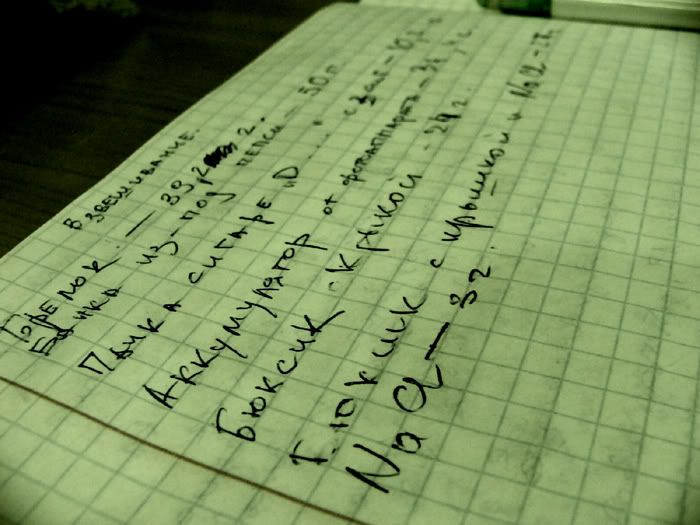 ВЗВЕШИВАНИЕ.
— 39,2 г.
Банка из-под пепси — 50 г.
Пачка сигарет
Аккумулятор от фотоаппарата —
Бюксик с крышкой - 24 г.
Бюксик с крышкой и NaCl —
NaCl — 3 г.